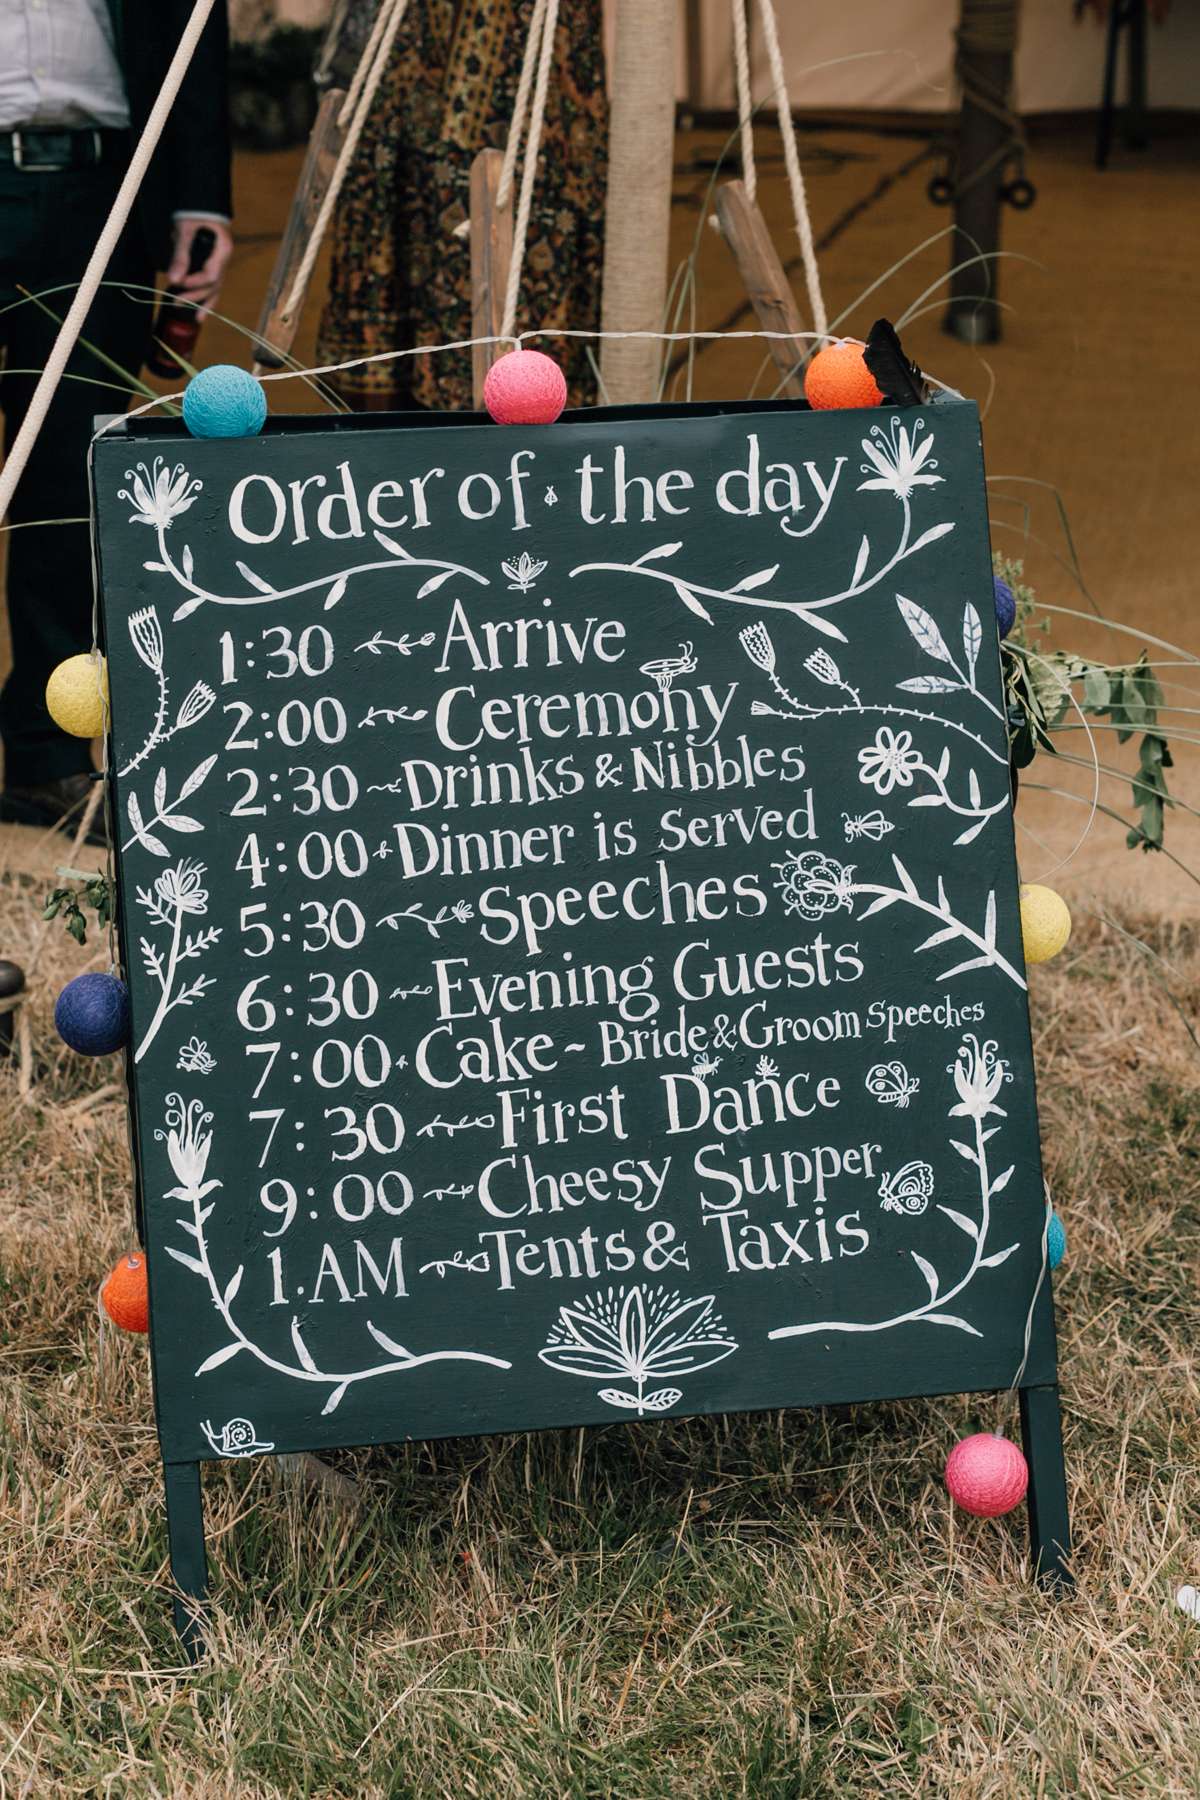 Order of the day
1:30 Arrive
2:00 Ceremony
2:30 ~ Drinks & Nibbles
4:00 Dinner is Served
5:30 Speeches
6:30 Evening Guests
7:00 Cake ~ Bride & Groom Speeches
7:30 First Dance
9:00 Cheesy Supper
1.AM Tents & Taxis